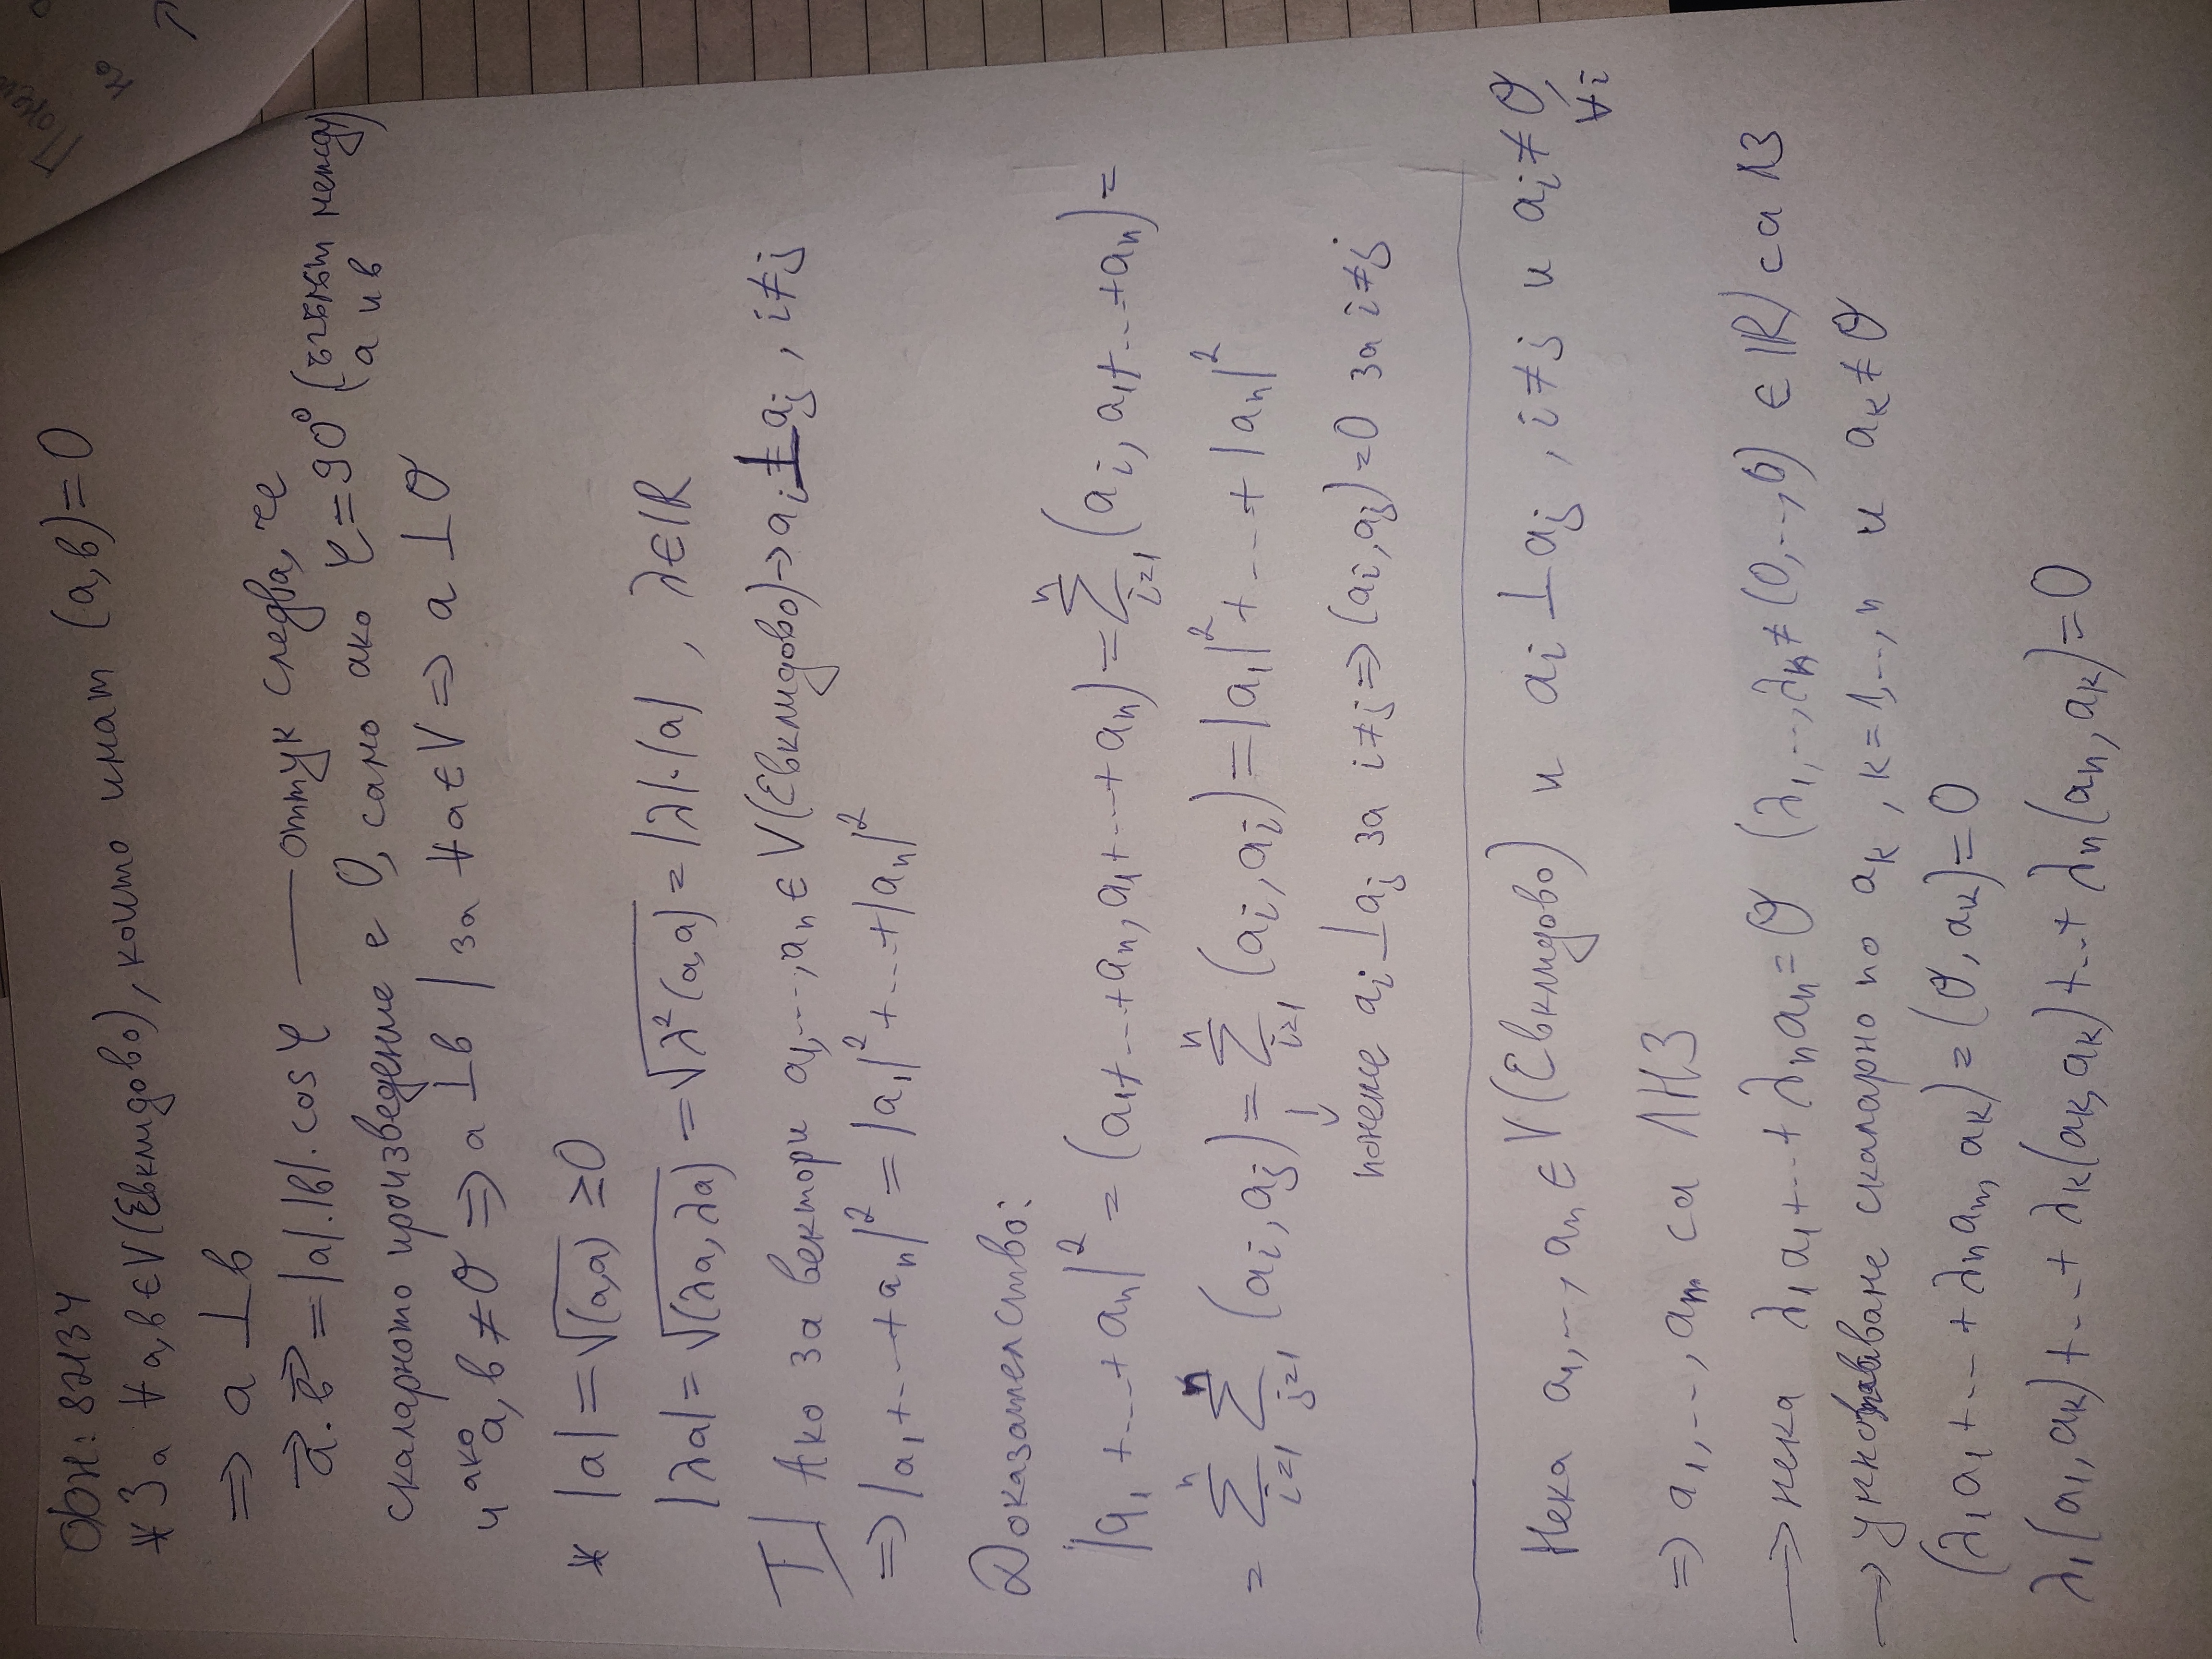 ФН: 82134
* За ∀ a,b ∈ V(Евклидово), които имат (a,b)=0
=> a ⊥ b
a⃗.b⃗ = |a|.|b|.cos φ — оттук следва, че
скаларното произведение е 0, само ако φ=90° (ъгълът между a и b)
и ако a, b ≠ O => a ⊥ b | за ∀a∈V => a ⊥ O
* |a| = √(a,a) ≥ 0
|λa| = √(λa, λa) = √λ²(a,a) = |λ|.|a| , λ∈ℝ
T/ Ако за вектори a₁,...,aₙ ∈ V(Евклидово) → aᵢ ⊥ aⱼ , i≠j
=> |a₁+...+aₙ|² = |a₁|²+...+|aₙ|²
Доказателство:
|a₁ +...+ aₙ|² = (a₁+...+aₙ, a₁+...+aₙ) = ∑ⁿᵢ₌₁ (aᵢ, a₁+...+aₙ) =
= ∑ⁿᵢ₌₁ ∑ⁿⱼ₌₁ (aᵢ, aⱼ) = ∑ⁿᵢ₌₁ (aᵢ, aᵢ) = |a₁|² + ... + |aₙ|²
↓
понеже aᵢ ⊥ aⱼ за i≠j => (aᵢ, aⱼ)=0 за i≠j
Нека a₁,..., aₙ ∈ V(Евклидово) и aᵢ ⊥ aⱼ , i≠j и aᵢ ≠ O, ∀i
=> a₁,..., aₙ са ЛНЗ
→ нека λ₁a₁+...+ λₙaₙ = O (λ₁,..,λₙ ≠ (0,..,0) ∈ ℝ) са ЛЗ
→ умножаване скаларно по aₖ , k=1,..,n и aₖ ≠ O
(λ₁a₁+...+ λₙaₙ, aₖ) = (O, aₖ) = 0
λ₁(a₁, aₖ)+...+ λₖ(aₖ, aₖ)+..+ λₙ(aₙ, aₖ) = 0